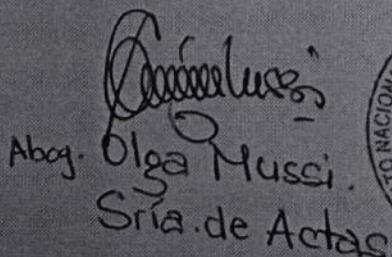 Abog. Olga Mussi.
Sría. de Actas
TO NACIONA